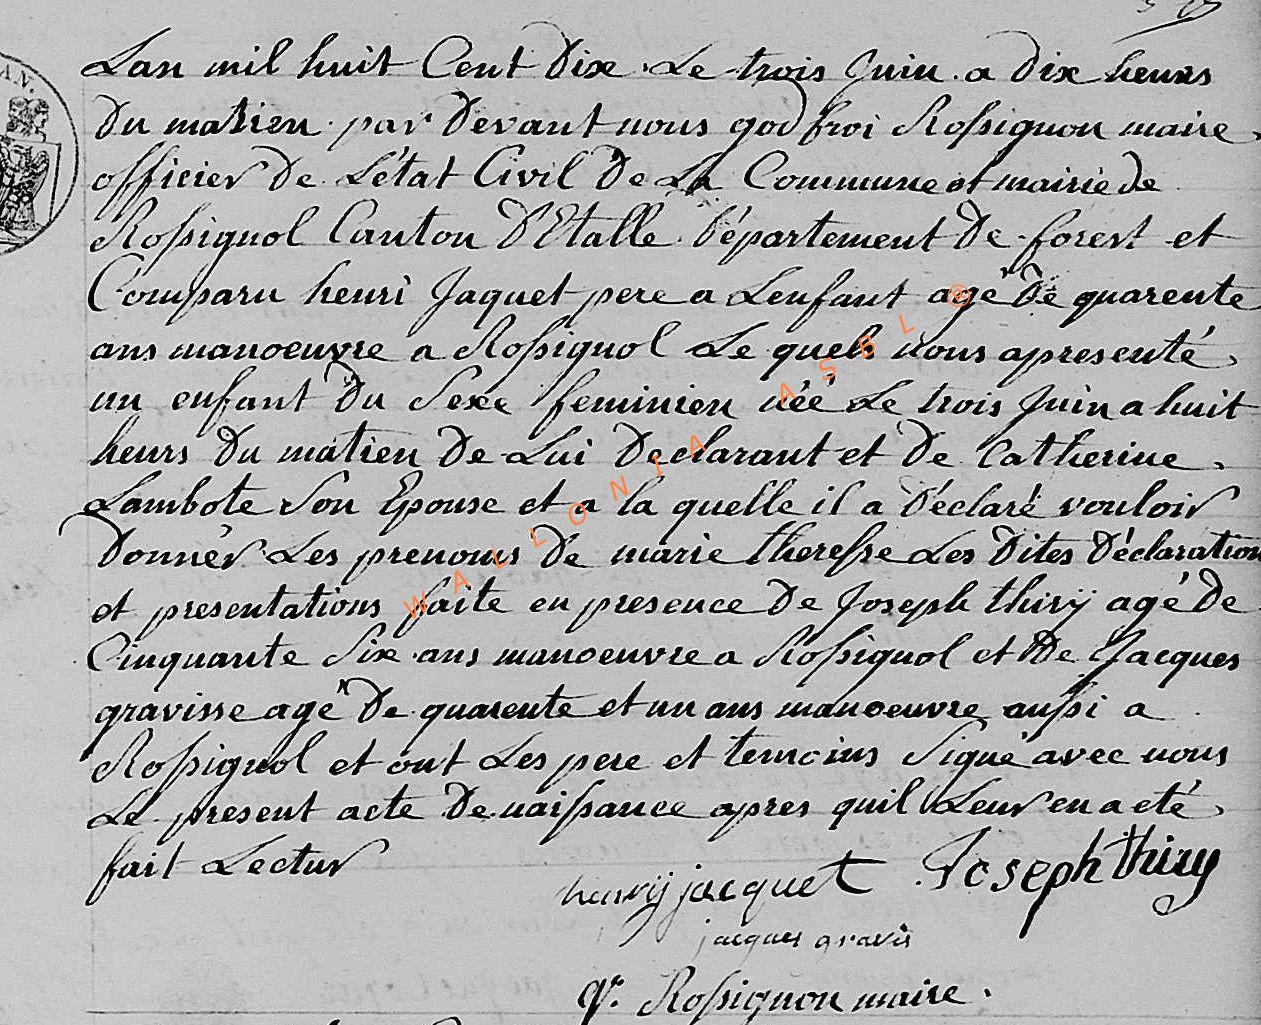 Lan mil huit Cent Dix Le trois Juin a Dix heurs
Du matien par Devant nous godfroi Rossignon maire
officier De L'état Civil De La Commune et mairie De
Rossignol Canton D'Etalle Département De forest et
Comparu henri Jaquet pere a Lenfant agé De quarente
ans manoeuvre a Rossignol Le quel nous apresenté
un enfant Du Sexe feminien néé Le trois Juin a huit
heurs Du matien De Lui Declarant et De Catherine
Lambote Son Epouse et a la quelle il a Déclaré vouloir
Donnér Les prenoms De marie theresse Les Dites Déclaration
et presentations faite en presence De Joseph thirÿ agé De
Cinquante Six ans manoeuvre a Rossignol et De Jacques
gravisse agé De quarente et un ans manoeuvre aussi a
Rossignol et ont Les pere et temoins Signé avec nous
Le present acte De naissance apres quil Leur en a eté
fait Lectur
henrÿ jacquet Joseph thiry
jacques gravis
gr. Rossignon maire.
WALLONIA ASBL ®
AN.